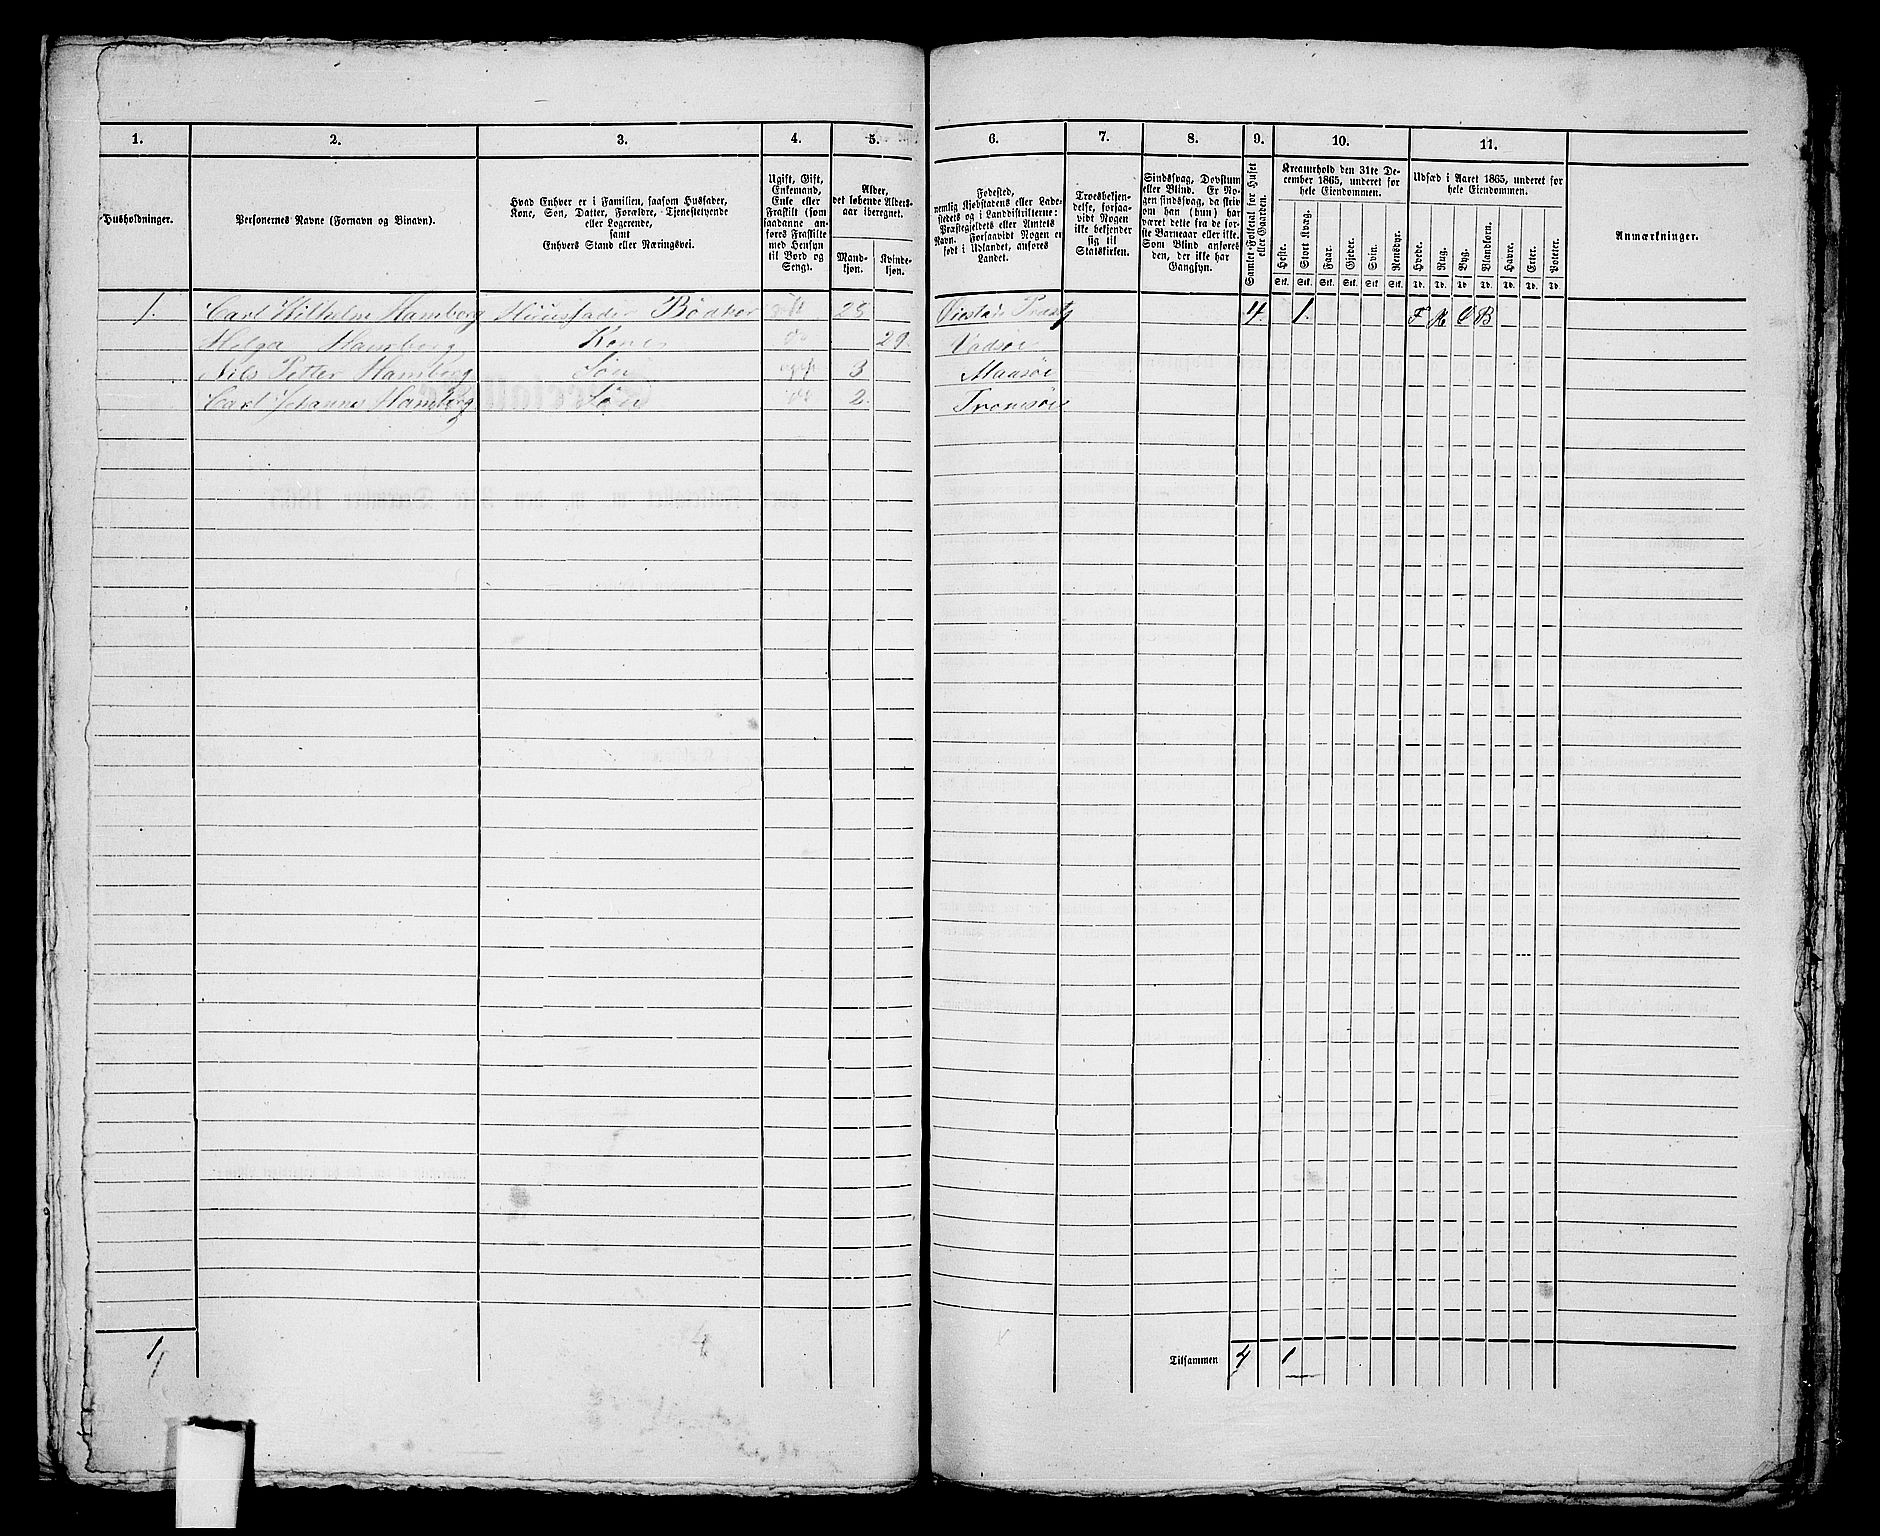 1. 2. 3. 4. 5. 6. 7. 8. 9. 10. 11.
Husholdninger.
Personernes Navne (Fornavn og Binavn).
Hvad Enhver er i Familien, saasom Husfader,
Kone, Søn, Datter, Forældre, Tjenestetyende
eller Logerende,
samt
Enhvers Stand eller Næringsvei.
Ugift, Gift,
Enkemand,
Enke eller
Fraskilt (som
saadanne an-
føres Fraskilte
med Hensyn
til Bord og
Seng).
Alder,
det løbende Alders-
aar iberegnet.
Mand-
kjøn.
Kvinde-
kjøn.
Fødested,
nemlig Kjøbstadens eller Lade-
stedets og i Landdistrikterne:
Præstegjeldets eller Amtets
Navn. Forsaavidt Nogen er
født i Udlandet, anføres
Landet.
Troesbekjen-
delse, forsaa-
vidt Nogen
ikke bekjender
sig til
Statskirken.
Sindssvag, Døvstum
eller Blind. Er No-
gen sindssvag, da skriv
om han (hun) har
været dette fra de før-
ste Barneaar eller ikke.
Som Blind anføres
den, der ikke har
Gangsyn.
Samlet Folketal for Huset
eller Gaarden.
Kreaturhold den 31te De-
cember 1865, underet for
hele Eiendommen.
Heste. Stort Kvæg. Faar. Gjeder. Svin. Rensdyr.
Stk. Stk. Stk. Stk. Stk. Stk.
Udsæd i Aaret 1865, underet for
hele Eiendommen.
Hvede. Rug. Byg. Blandkorn. Havre. Erter. Poteter.
Td. Td. Td. Td. Td. Td. Td.
Anmærkninger.
1. Carl Wilhelm Hamborg Huusfader Bødker gift 28 4. 1.
Helga Hamborg Kone do 29. Vadsøe
Nils Petter Hamborg Søn ugift 3 Maasøe
Carl Johannes Hamborg Søn do 2. Tromsøe
1 4 Tilsammen 4 1